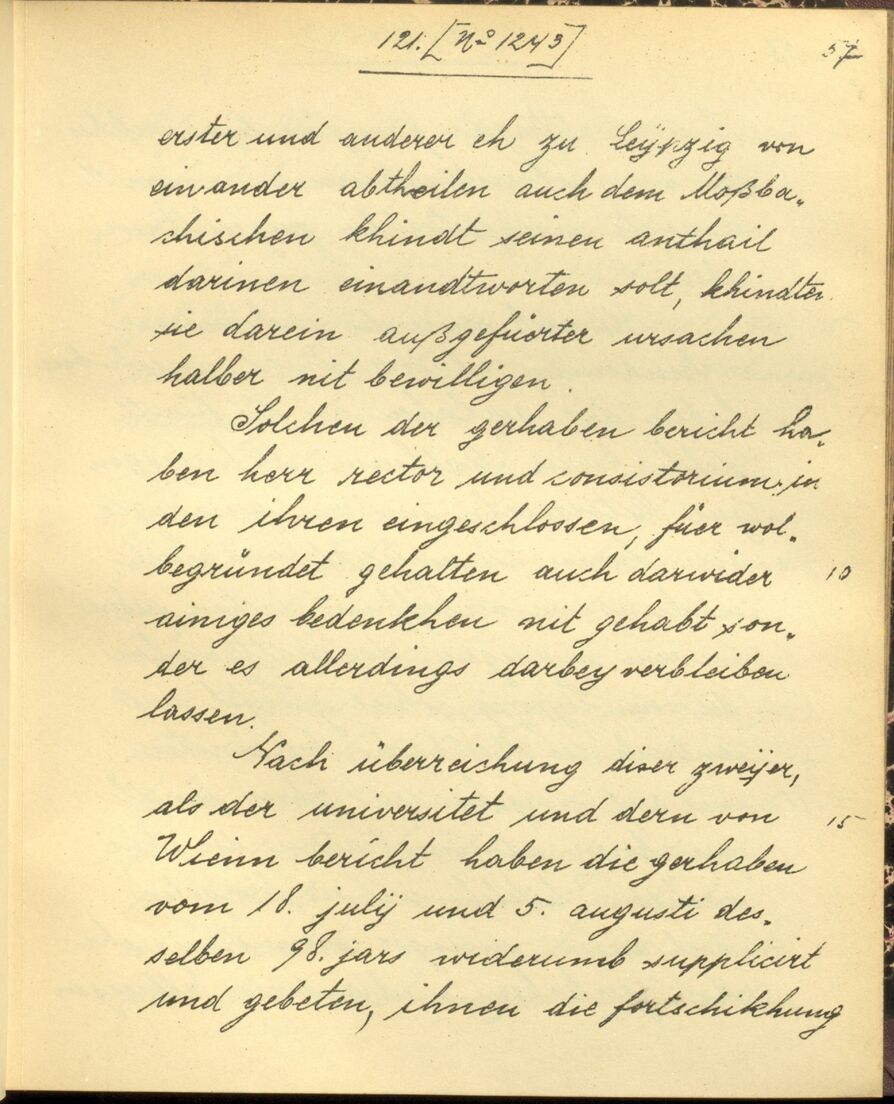 121. [No 1243]
57
erster und anderer eh zu Leÿpzig von
einander abtheilen auch dem Moßba„
chischen khindt seinen anthail
darinen einandtworten solt, khindten
sie darein außgefüerter ursachen
halber nit bewilligen.
Solchen der gerhaben bericht ha„
ben herr rector und consistorium in
den ihren eingeschlossen, füer wol„
begründet gehalten auch darwider 10
ainiges bedenkhen nit gehabt son„
der es allerdings darbey verbleiben
lassen.
Nach überreichung diser zweÿer,
als der universitet und dern von 15
Wienn bericht haben die gerhaben
vom 18. julÿ und 5. augusti des„
selben 98. jars widerumb supplicirt
und gebeten, ihnen die fortschikhung